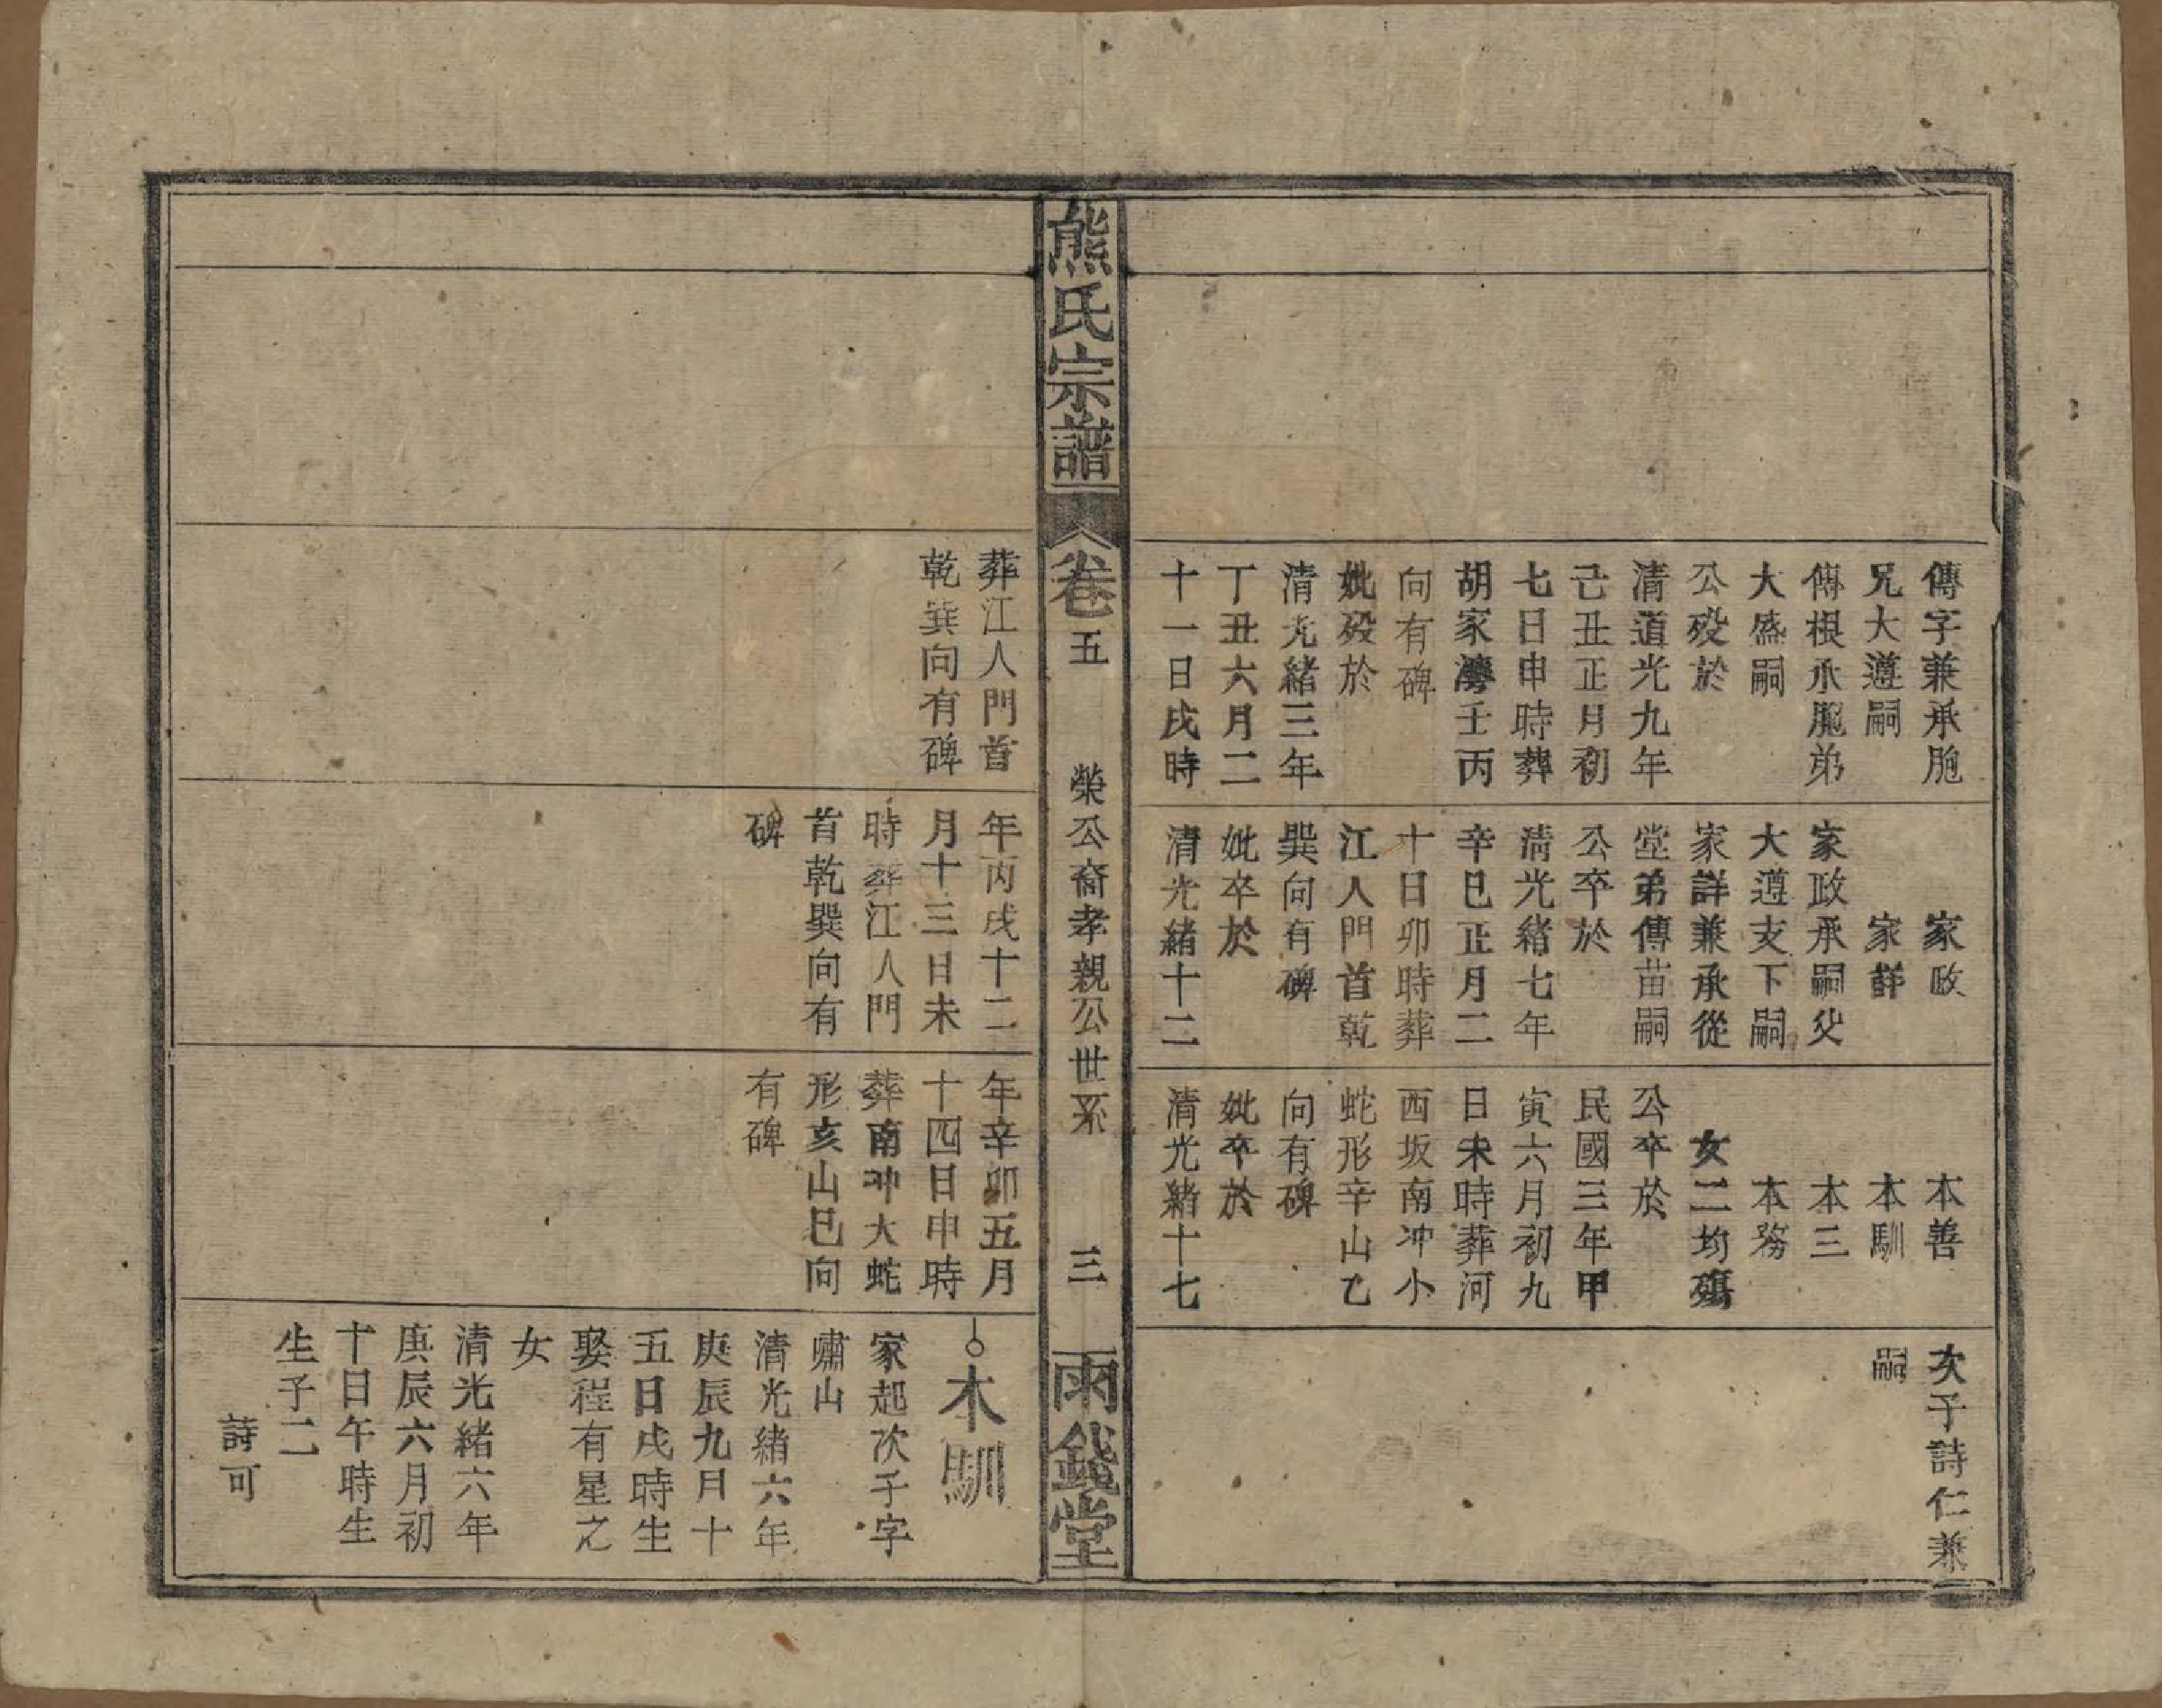 傳字兼承胞
兄大遵嗣
傳根承胞弟
大盛嗣
公殁於
清道光九年
己丑正月初
七日申時葬
胡家灣壬丙
向有碑
妣殁於
清光緒三年
丁丑六月二
十一日戌時
家政
家詳
家政承嗣父
大遵支下嗣
家詳兼承從
堂弟傳苗嗣
公卒於
清光緒七年
辛巳正月二
十日卯時葬
江人門首乾
巽向有碑
妣卒於
清光緒十二
本善
本馴
本三
本務
女二均殤
公卒於
民國三年甲
寅六月初九
日未時葬河
西坂南冲小
蛇形辛山乙
向有碑
妣卒於
清光緒十七
次子詩仁兼
嗣
熊氏宗譜
卷五
榮公裔孝親公世系
三
雨錢堂
葬江人門首
乾巽向有碑
年丙戌十二
月十三日未
時葬江人門
首乾巽向有
碑
年辛卯五月
十四日申時
葬南冲大蛇
形亥山巳向
有碑
本馴
家起次子字
嘯山
清光緒六年
庚辰九月十
五日戌時生
娶程有星之
女
清光緒六年
庚辰六月初
十日午時生
生子二
詩可